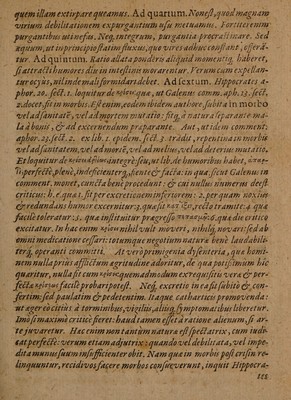 quem illam extisparqueamus. Ad quartum. Non est, quod magnam
virium debilitationem expurgantium usu metuamus. Fortiter enim
purgantibus utimur. Neq́; integrum, purgantia procrastinare. Sed
æquum, ut in principio statim fluxus, quo vires adhuc constant, offerā-
tur. Ad quintum. Ratio allata ponderis aliquid momentiq́; haberet,
si attracti humores diu in intestinis morarentur. Verum cum expellan-
tur ocyus, nil inde mali formidari debet. Ad sextum. Hippocrates a-
phor. 20. sect. 1. loquitur de κρίσει, ut Galenus comm. aph. 13. sect.
2. docet, fit in morbis. Est enim, eodem ibidem authore, subita in morbo
vel ad sanitatē, vel ad mortem mutatio: fitq́; à natura separante ma-
la à bonis, & ad excernendum præparante. Aut, ut idem comment:
aphor. 13. sect. 2. ex lib. 1. epidem. sect. 3. tradit, repentina in morbo
vel ad sanitatem, vel ad mortē, vel ad melius, vel ad deterius mutatio.
Et loquitur de integrè seu, ut lib. de humoribus habet,
perfectè, plenè, indeficienter, sciente & facta: in qua sicut Galenus in
comment. monet, cuncta benè procedunt: & cui nullus numerus deest
criticus: h. e. quæ 1. fit per excretionem inferiorem: 2. per quam noxius
& redundans humor excernitur: 3. quæ fit rectè tramite: 4. quæ
facile toleratur: 5. quæ instituitur progresso 6. quæ die critico
excitatur. In hac enim κρίσει nihil vult moveri, nihilq́; novari: sed ab
omni medicatione cessari: totumque negotium naturæ benè laudabili-
terq́; operanti committi. At verò primogenia dysenteria, quæ homi-
nem nulla prius afflictum ægritudine adoritur, de qua potissimum hic
quæritur, nulla fit cum κρίσει: quemadmodum ex requisitis veræ & per-
fectæ κρίσεως facile probari potest. Neq́; excretio in ea fit subitò &, con-
fertim: sed paulatim & pedetentim. Itaque catharticis promovenda:
ut æger ociùs à torminibus, vigiliis, aliisq́; symptomatibus liberetur.
Imò si maximè critica fieret: haud tamen esset à ratione alienum, si ar-
te juvaretur. Hac enim non tantum natura est spectatrix, cum judi-
cat perfectè: verum etiam adjutrix: quando vel debilitata, vel impe-
dita munus suum insufficienter obit. Nam quæ in morbis post crisin re-
linquuntur, recidivos facere morbos consueverunt, inquit Hippocra-
tes